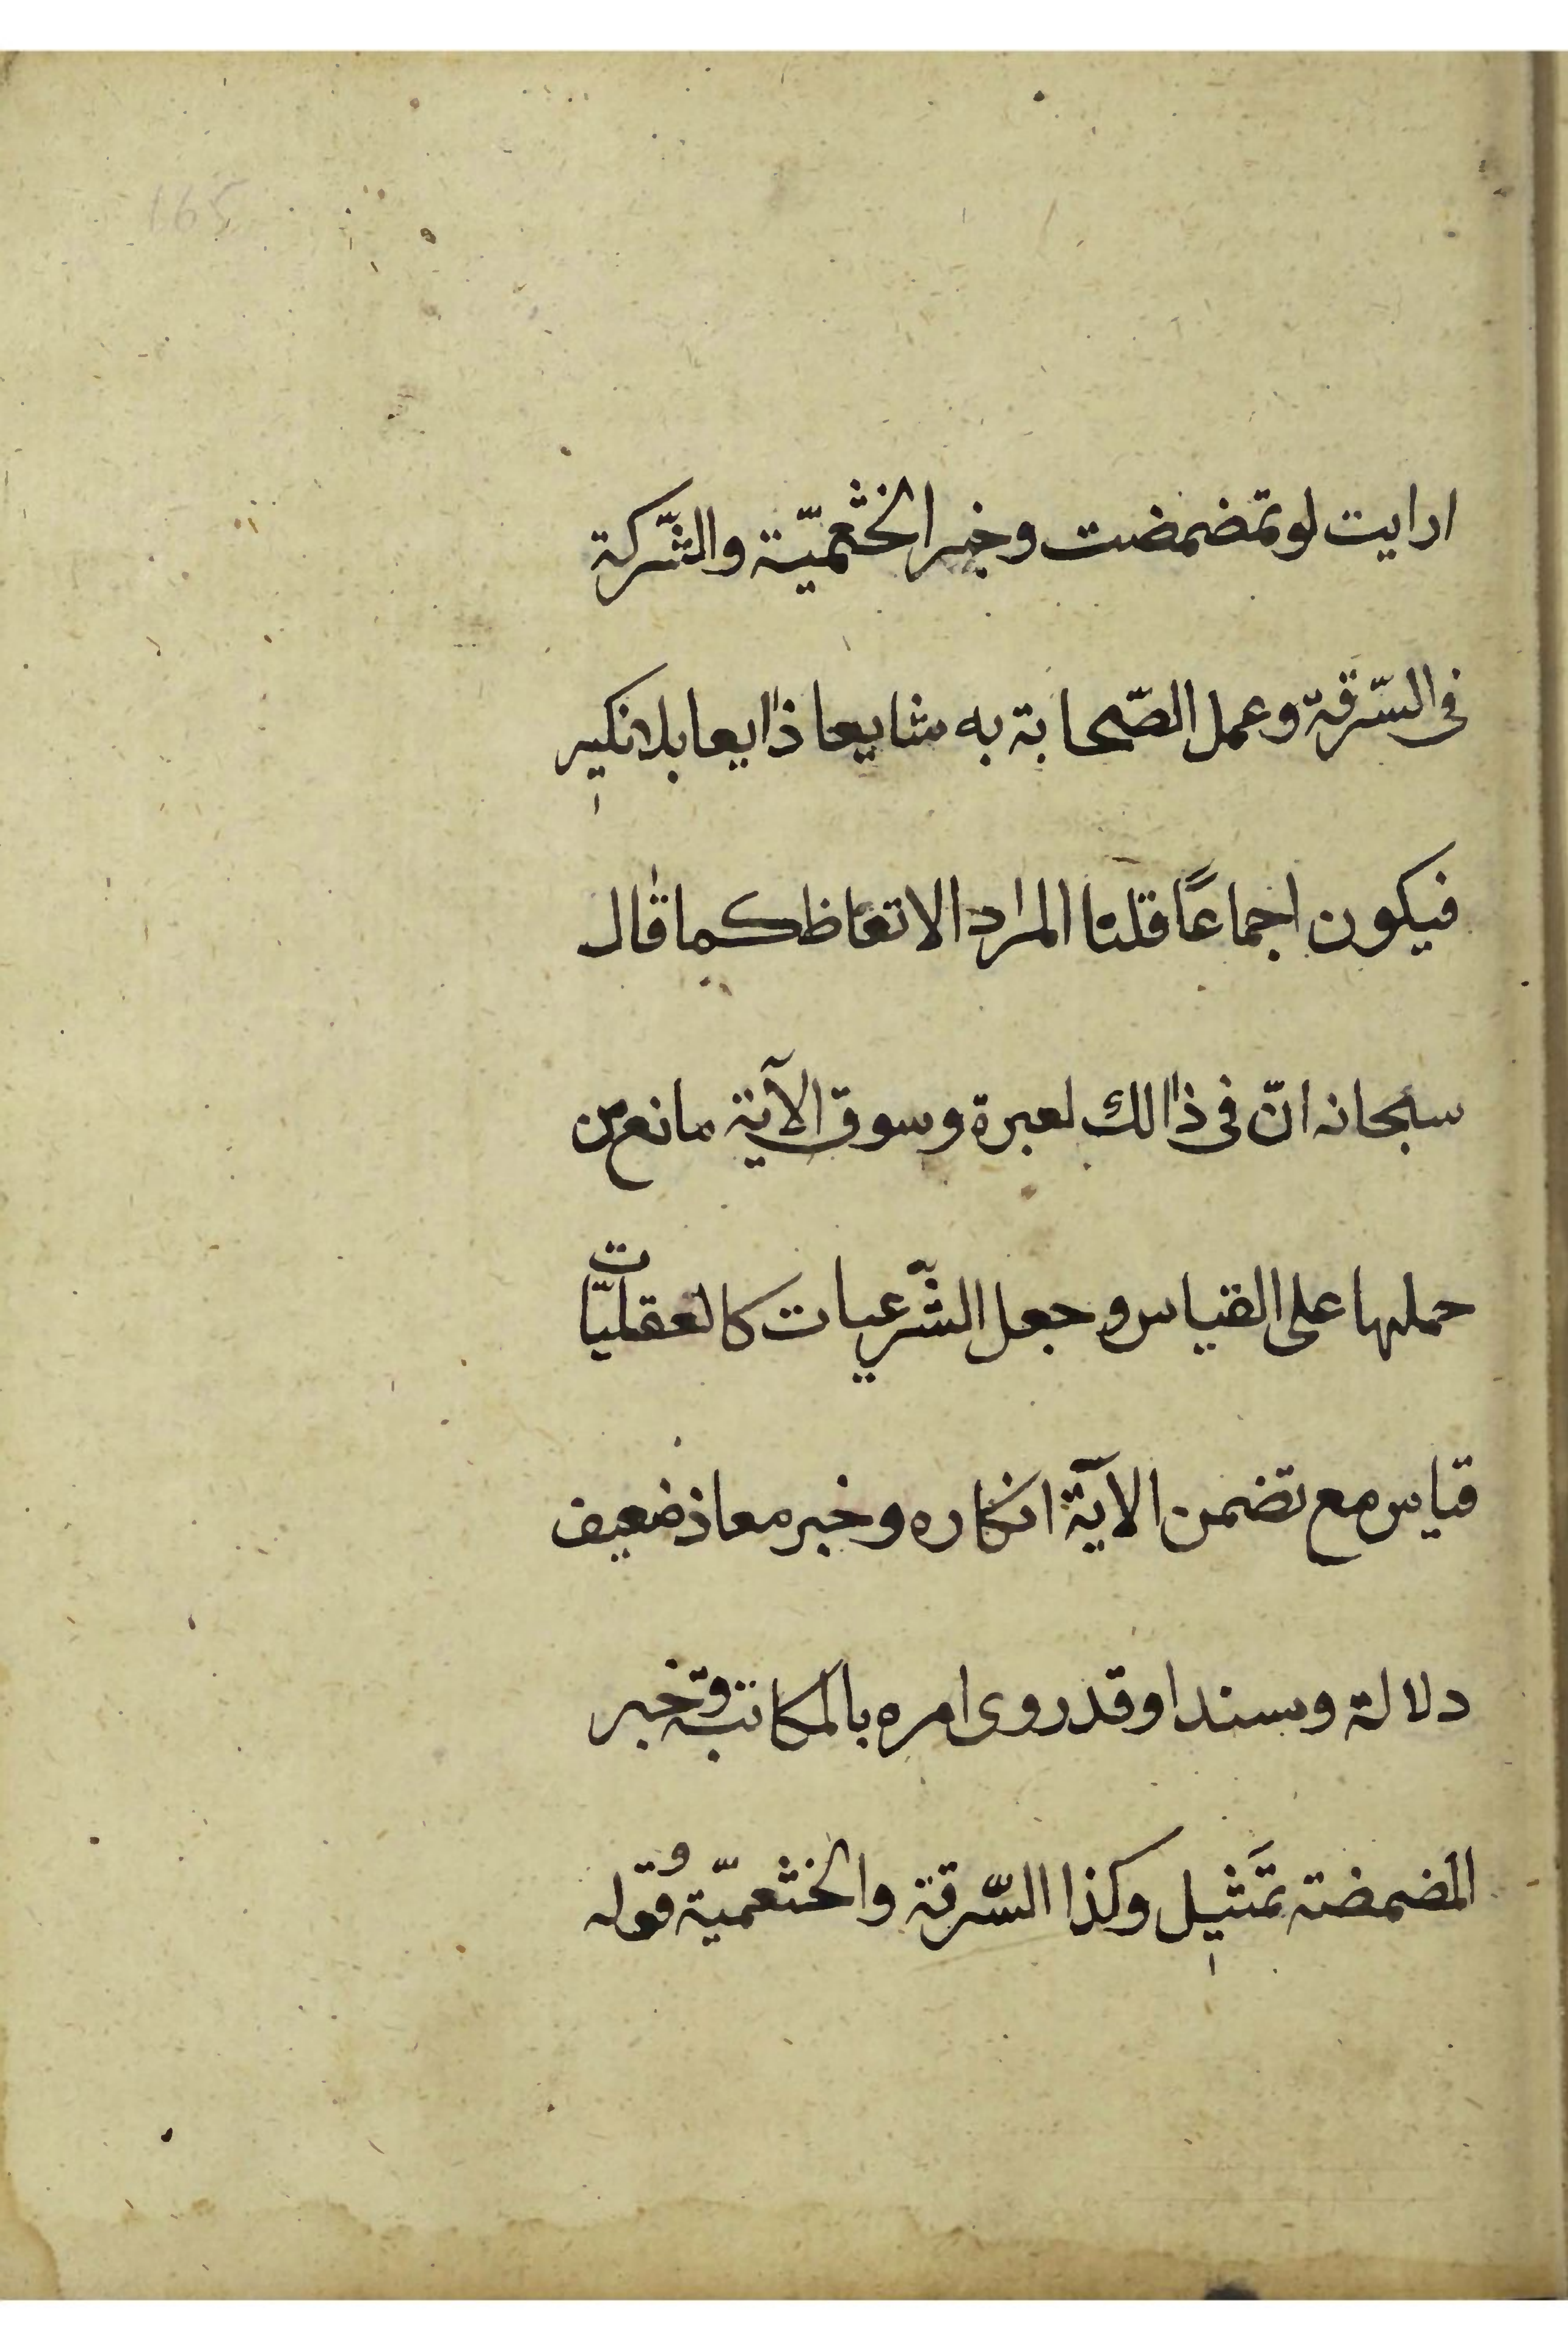 165
ارايت لو تمضمضت وخبر الخثعميّة والشّركة
فى السّرقة وعمل الصّحابة به شايعا ذايعا بلا نكير
فيكون اجماعًا قلنا المراد الاتعاظ كما قال
سبحانه انّ فى ذالك لعبرة وسوق الآية مانع من
حملها على القياس وجعل الشّرعيات كالعقليّات
قياس مع تضمن الآية انكاره وخبر معاذ ضعيف
دلالة وسندا وقد روى امره بالمكاتبة وخبر
المضمضة تمثيل وكذا السّرقة والخثعميّة وقوله